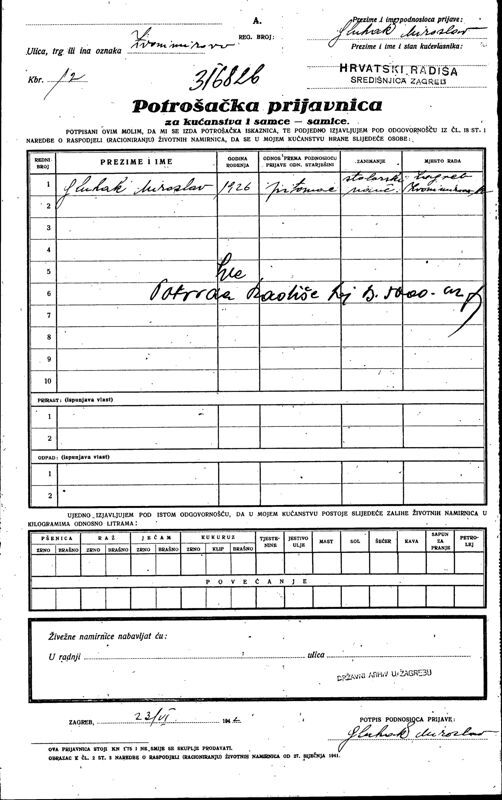 A.
REG. BROJ:
Prezime i ime podnosioca prijave:
Gluhak Miroslav
Ulica, trg ili ina oznaka Zvonimirova
Prezime i ime i stan kućevlasnika:
Kbr. 12
3/6826
HRVATSKI RADIŠA
SREDIŠNJICA ZAGREB
Potrošačka prijavnica
za kućanstva i samce — samice.
POTPISANI OVIM MOLIM, DA MI SE IZDA POTROŠAČKA ISKAZNICA, TE PODJEDNO IZJAVLJUJEM POD ODGOVORNOŠĆU IZ ČL. 18 ST. 1
NAREDBE O RASPODJELI (RACIONIRANJU) ŽIVOTNIH NAMIRNICA, DA SE U MOJEM KUĆANSTVU HRANE SLIJEDEĆE OSOBE:
REDNI BROJ PREZIME I IME GODINA ROĐENJA ODNOS PREMA PODNOSIOCU PRIJAVE ODN. STARJEŠINI ZANIMANJE MJESTO RADA
1 Gluhak Miroslav 1926 pitomac stolarski nauč. Zagreb
2
3
4
5
6 Potvrda Radiše
7
8
9
10
PRIRAST: (ispunjava vlast)
1
2
ODPAD: (ispunjava vlast)
1
2
UJEDNO IZJAVLJUJEM POD ISTOM ODGOVORNOŠĆU, DA U MOJEM KUĆANSTVU POSTOJE SLIJEDEĆE ZALIHE ŽIVOTNIH NAMIRNICA U
KILOGRAMIMA ODNOSNO LITRAMA:
PŠENICA RAŽ JEČAM KUKURUZ TJESTENINE JESTIVO ULJE MAST SOL ŠEĆER KAVA SAPUN ZA PRANJE PETROLEJ
ZRNO BRAŠNO ZRNO BRAŠNO ZRNO BRAŠNO ZRNO KLIP BRAŠNO
POVEĆANJE
Živežne namirnice nabavljat ću:
U radnji ulica
DRŽAVNI ARHIV U ZAGREBU
ZAGREB, 23/VI 194
POTPIS PODNOSIOCA PRIJAVE:
Gluhak Miroslav
OVA PRIJAVNICA STOJI KN 1'75 I NE SMIJE SE SKUPLJE PRODAVATI.
OBRAZAC K ČL. 2 ST. 3 NAREDBE O RASPODJELI (RACIONIRANJU) ŽIVOTNIH NAMIRNICA OD 27. SIJEČNJA 1941.